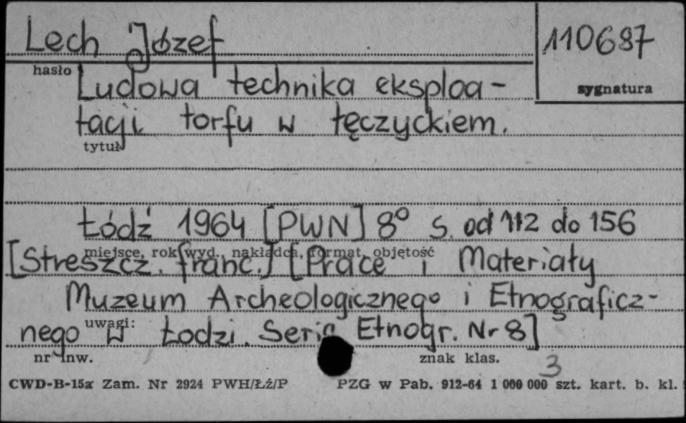 Lech Józef
110687
hasło
sygnatura
Ludowa technika eksploa-
tacji torfu w Łęczyckiem.
tytuł
Łódź 1964 [PWN] 8° s. od 112 do 156
miejsce, rok wyd., nakładca, format, objętość
[Streszcz. franc.] [Prace i Materiały
Muzeum Archeologicznego i Etnograficz-
nego w Łodzi. Seria Etnogr. Nr 8]
uwagi:
nr inw.
znak klas.
3
CWD-B-15a Zam. Nr 2924 PWH/Łź/P PZG w Pab. 912-64 1 000 000 szt. kart. b. kl.